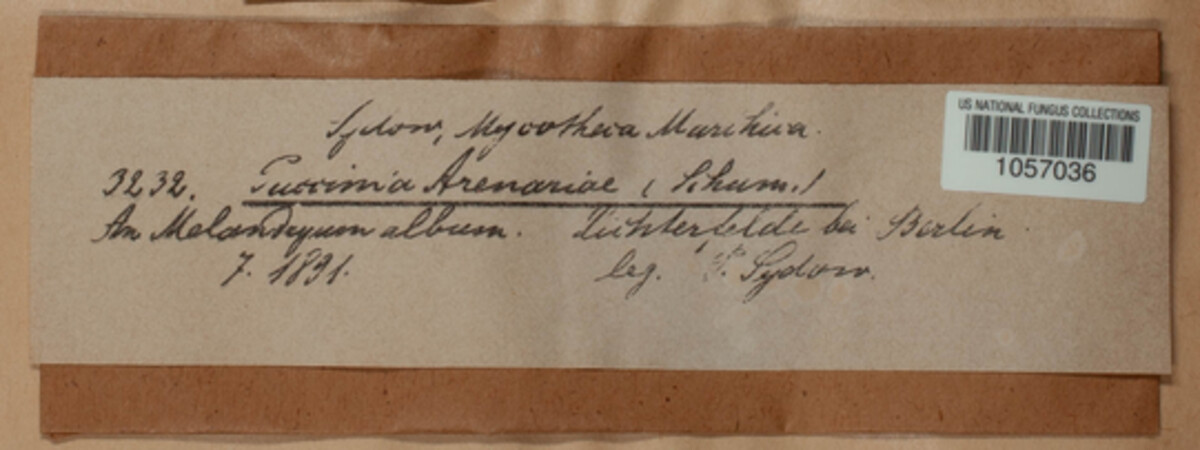 Sydow, Mycotheca Marchica.
US NATIONAL FUNGUS COLLECTIONS
1057036
3232. Puccinia Arenariae (Schum.)
An Melandryum album. Lichterfelde bei Berlin
7. 1891. leg. P. Sydow.